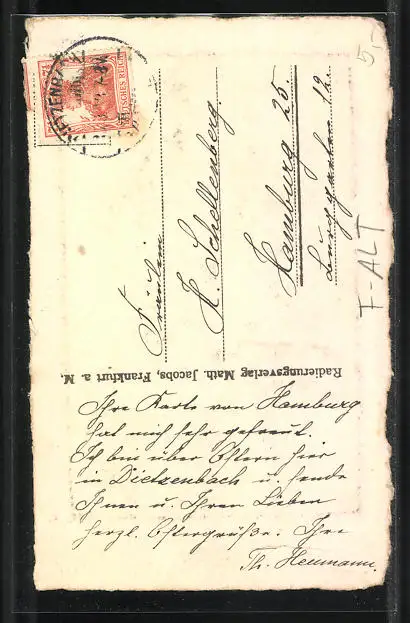 Ihre Karte von Hamburg
hat mich sehr gefreut.
Ich bin über Ostern hier
in Dietzenbach u. sende
Ihnen u. Ihren Lieben
herzl. Ostergrüße. Ihre
Th. Heumann.
Radierungsverlag Math. Jacobs, Frankfurt a. M.
Fräulein
H. Schellenberg
Hamburg 25.
12
DEUTSCHES REICH
F-ALT
5,-